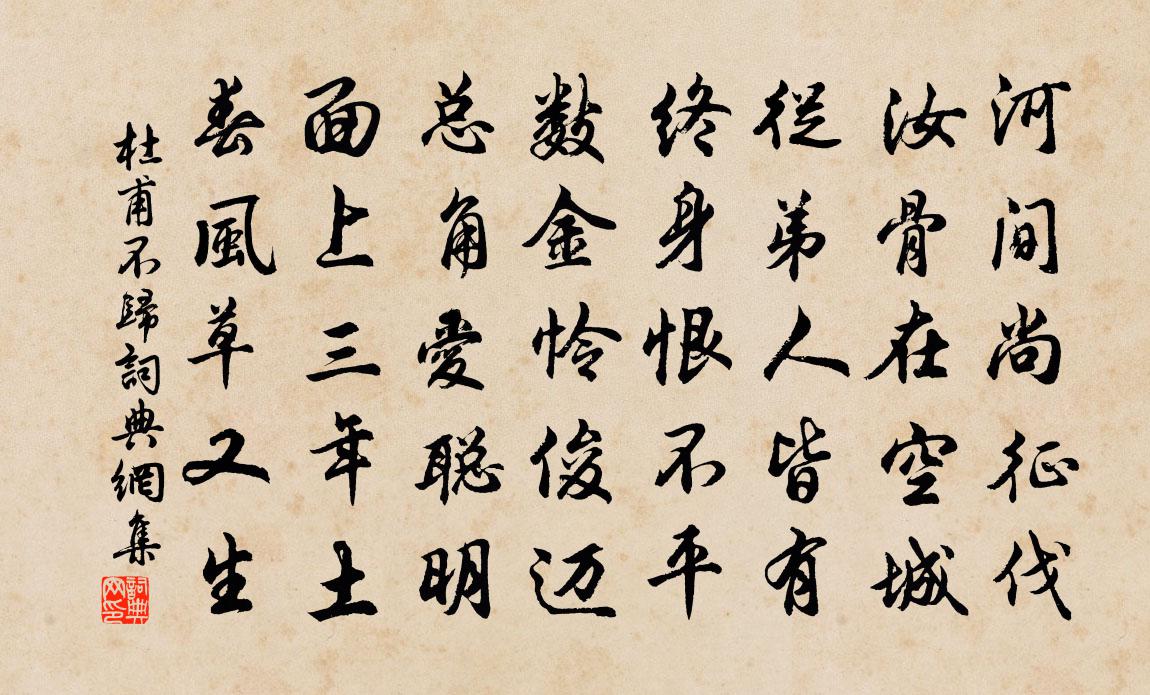 河间尚征伐
汝骨在空城
從弟人皆有
终身恨不平
数金怜俊迈
总角愛聪明
面上三年土
春風草又生
杜甫不歸詞典網集
詞典网印